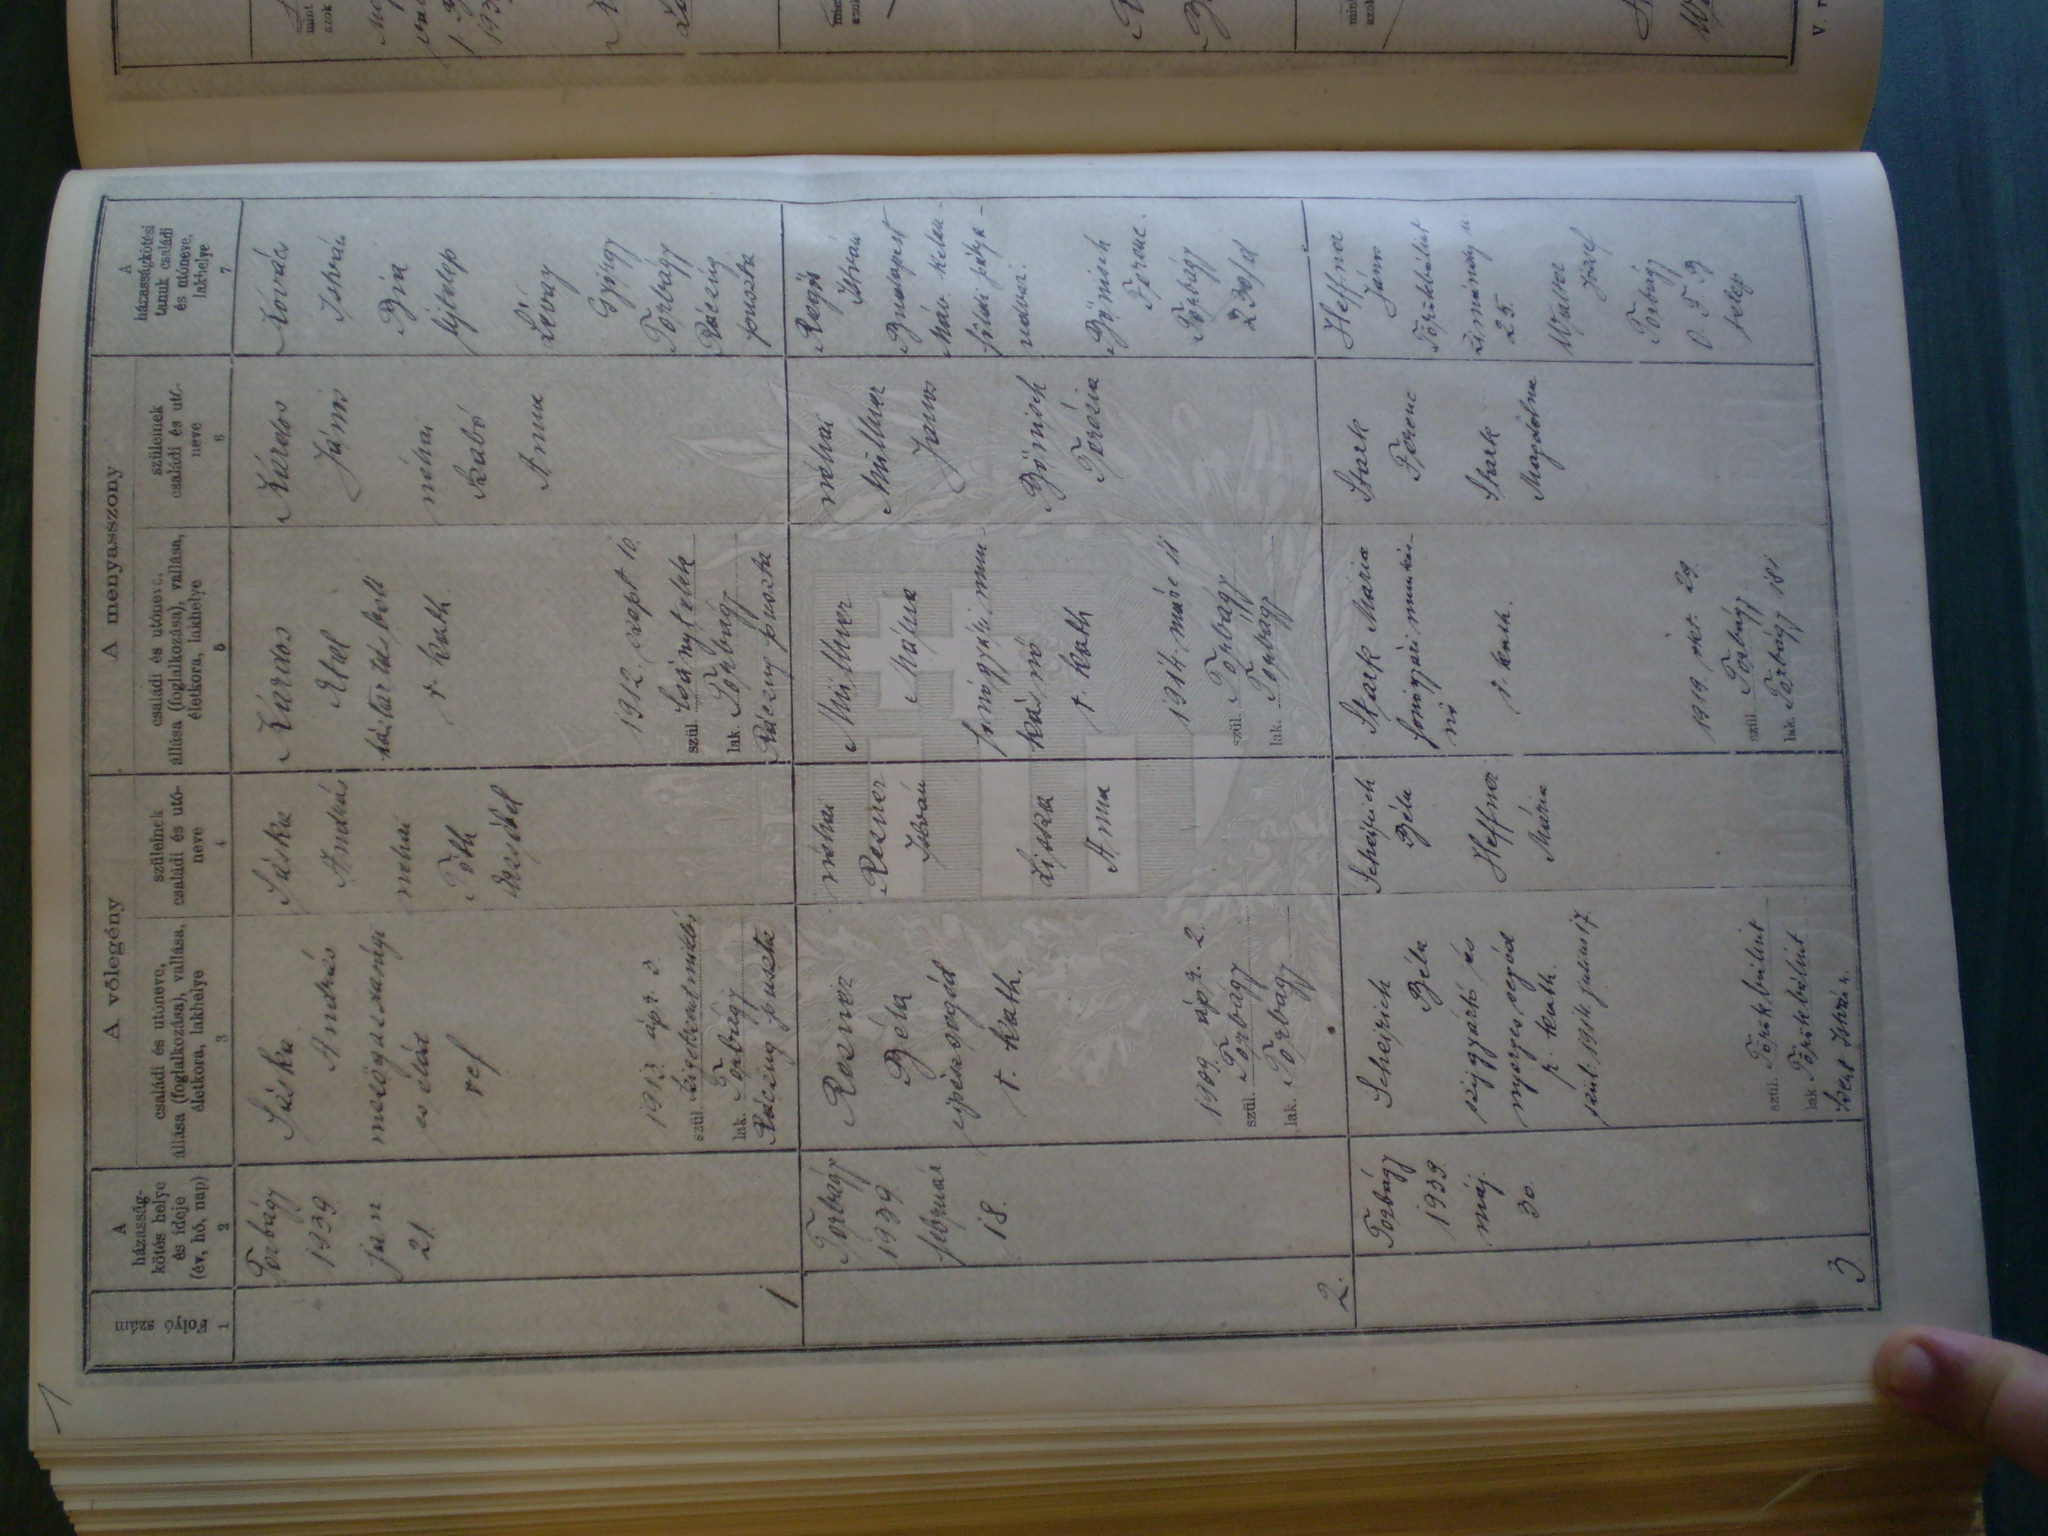 1
A vőlegény
A menyasszony
Folyó
szám
1
A
házasság-
kötés helye
és ideje
(év, hó, nap)
2
családi és utóneve,
állása (foglalkozása), vallása,
életkora, lakhelye
3
szüleinek
családi és utó-
neve
4
családi és utóneve,
állása (foglalkozása), vallása,
életkora, lakhelye
5
szüleinek
családi és utó-
neve
6
A
házasságkötési
tanuk családi
és utóneve,
lakhelye
7
1
Torbágy
1939
jan
21
Sáska
András
mezőgazdasági
cseléd
ref
1913 ápr. 3
szül. Szigetszentmiklós
lak. Torbágy
Ráczug puszta
Sáska
András
néhai
Tóth
Erzsébet
Káros
Etel
háztartásbeli
r. kath.
1912. szept 10.
szül. Leánytelek
lak. Torbágy
Ráczug puszta
János
néhai
Szabó
Anna
Kovács
István
Bia
Újtelep
Lévay
György
Torbágy
Ráczug
puszta
2.
Torbágy
1939.
február
18.
Rezner
Béla
iparossegéd
r. kath.
1909. ápr. 2.
szül. Torbágy
lak. Torbágy
néhai
Rezner
István
Liska
Anna
Müllner
Mária
fonógyári mun-
kásnő
r. kath
1914. márc 11
szül. Torbágy
lak. Torbágy
néhai
Müllner
János
Bömisch
Terézia
István
Budapest
Máv. kelen-
földi pálya-
udvar.
Bömisch
Ferenc.
Torbágy
230/d
3
Torbágy
1939.
máj.
30.
Béla
szíjgyártó és
nyerges segéd
r. kath.
szül. 1914. julius 17.
szül. Törökbálint
lak Törökbálint
Szent István u.
Béla
Heffner
Mária
Stark Mária
fonógyári munkás-
nő
r. kath.
1919 okt. 29.
szül. Torbágy
lak. Torbágy 181
Stark
Ferenc
Stark
Magdolna
Heffner
János
Törökbálint
u.
25.
József
Torbágy
telep
mint
azok
azok
mint
azok
V. r